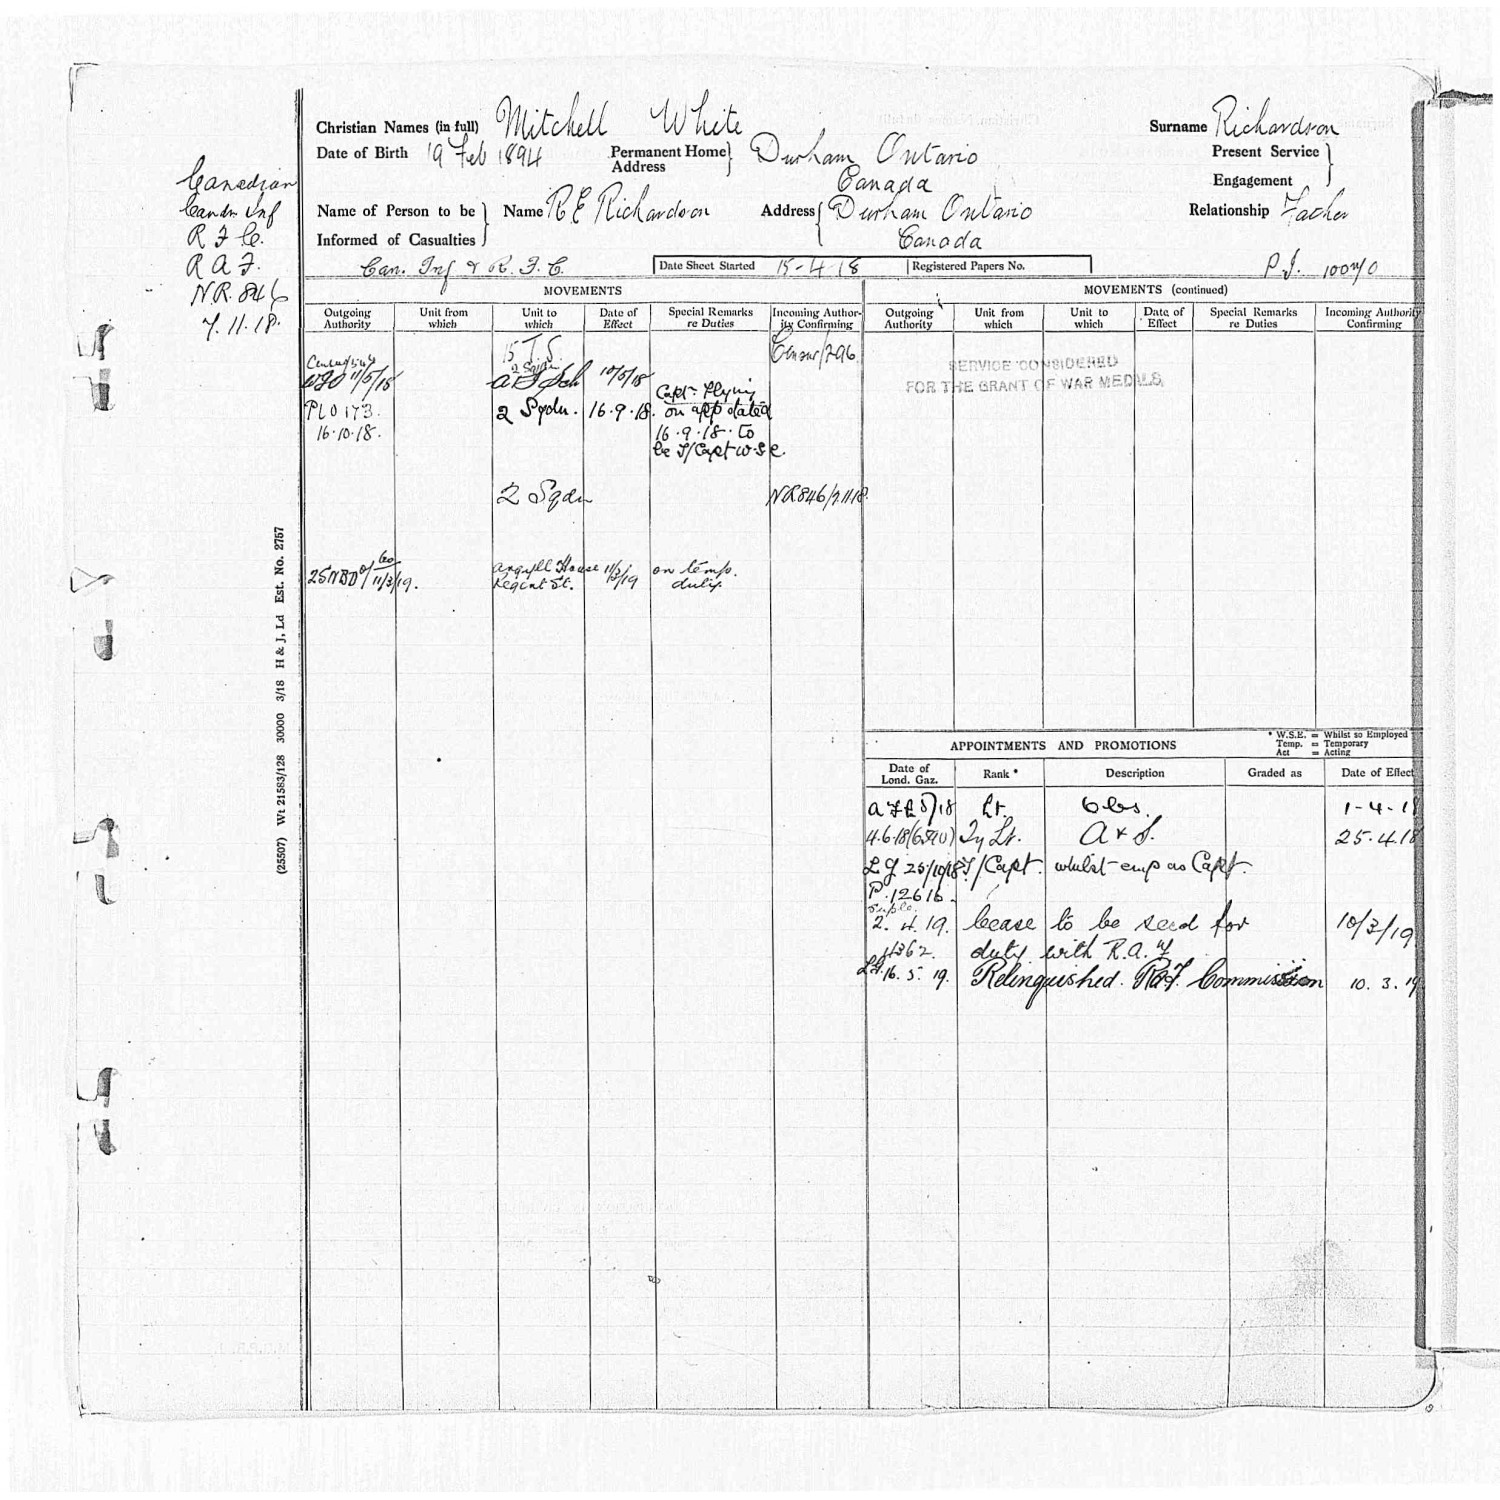 Christian Names (in full) Mitchell White
Surname Richardson
Date of Birth 19 Feb 1894
Permanent Home Address Durham Ontario
Canada
Present Service
Engagement
Name of Person to be Informed of Casualties
Name R E Richardson
Address Durham Ontario
Canada
Relationship Father
Can. Inf & R.F.C.
Date Sheet Started 15-4-18
Registered Papers No.
P.I.
Canadian
Candn Inf
R F C.
R A F.
N.R. 846
7.11.18.
MOVEMENTS
Outgoing Authority
Unit from which
Unit to which
Date of Effect
Special Remarks re Duties
Incoming Authority Confirming
15 T.S.
Census/296
2 Sqdn
11/5/18
10/5/18
PLO 173.
16.10.18.
2 Sqdn.
16.9.18.
Capt. Flying
on app dated
16.9.18. to
be T/Capt w.s.e.
2 Sqdn
NR846/7.11.18.
25NBD
11/3/19.
Argyll House
Regent St.
11/3/19
on temp.
duty.
MOVEMENTS (continued)
Outgoing Authority
Unit from which
Unit to which
Date of Effect
Special Remarks re Duties
Incoming Authority Confirming
SERVICE CONSIDERED
FOR THE GRANT OF WAR MEDALS.
APPOINTMENTS AND PROMOTIONS
* W.S.E. = Whilst so Employed
Temp. = Temporary
Act = Acting
Date of Lond. Gaz.
Rank *
Description
Graded as
Date of Effect
AFL 5/18 Lt. Obs. 1-4-18
4.6.18 (6540) Ty Lt. A & S. 25.4.18
LG 25/10/18 T/Capt. whilst emp as Capt.
P.12616.
2.4.19. Cease to be secd for 10/3/19
4362. duty with R.A.F.
LG. 16.5.19. Relinquished RAF Commission 10.3.19
(25507) Wt 21583/128 30000 3/18 H & J, Ld Est. No. 2757